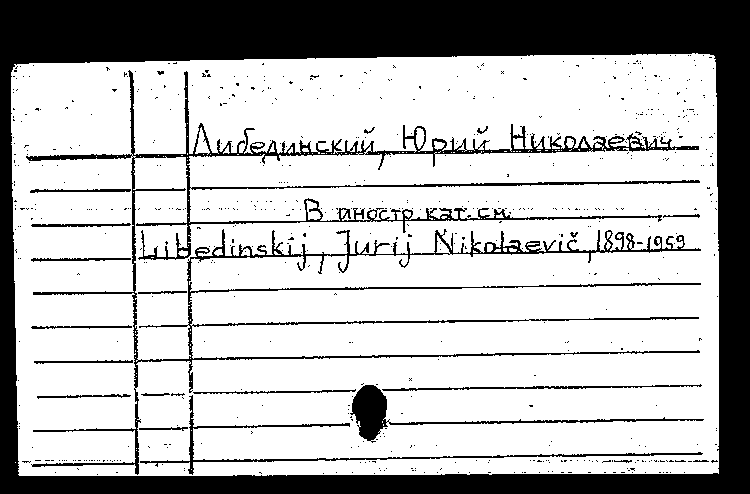 Либединский, Юрий Николаевич
В иностр. кат. см.
Libedinskij, Jurij Nikolaevič, 1898-1959